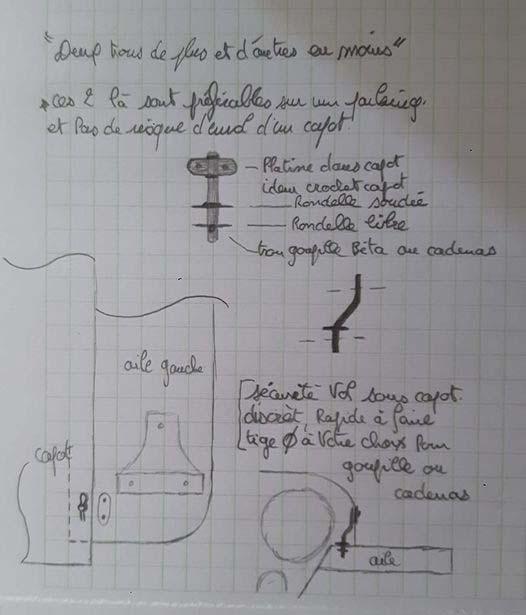 "Deux trous de plus et d'autres en moins"
ces 2 là sont préférables sur un
et Pas de risque d'envol d'un capot!
Platine dans capot
idem crochet capot
Rondelle soudée
Rondelle libre
trou goupille Béta ou cadenas
aile gauche
Sécurité Vol sous capot.
discrèt, Rapide à faire
tige Ø à Votre choix Pour
goupille ou
cadenas
capot
aile